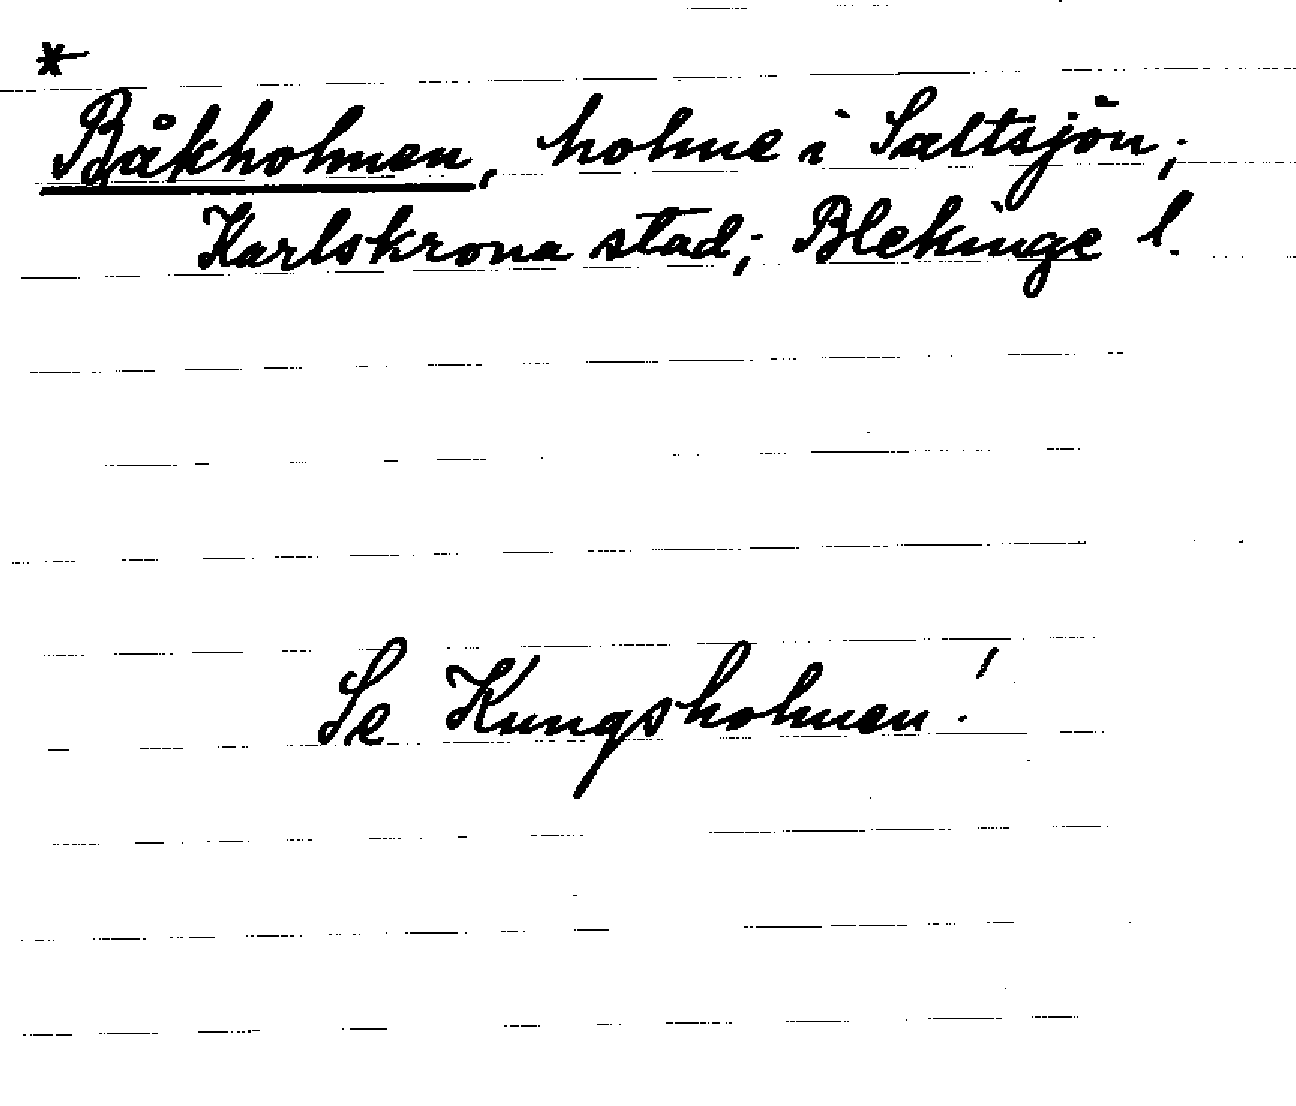 *
Båkholmen, holme i Saltsjön;
Karlskrona stad; Blekinge l.
Se Kungsholmen!